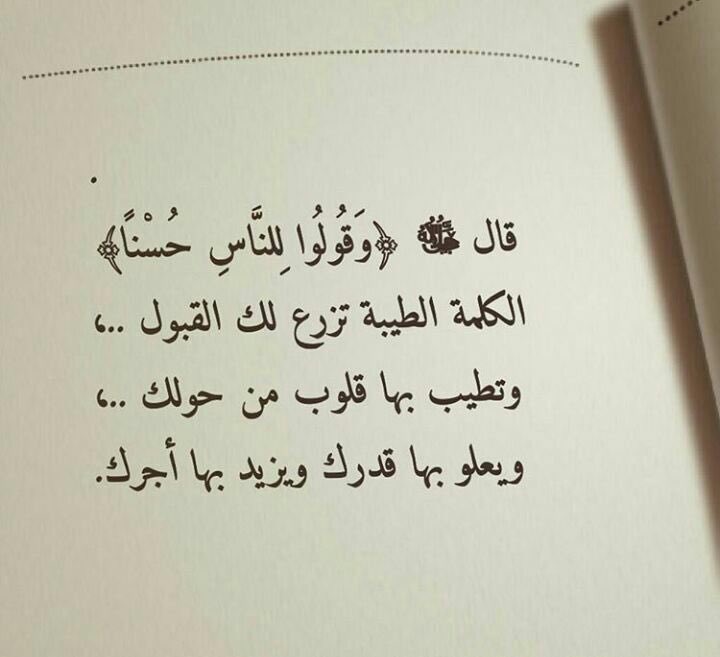 قال ﷻ ﴿وَقُولُوا لِلنَّاسِ حُسْنًا﴾
الكلمة الطيبة تزرع لك القبول ..،
وتطيب بها قلوب من حولك ..،
ويعلو بها قدرك ويزيد بها أجرك.